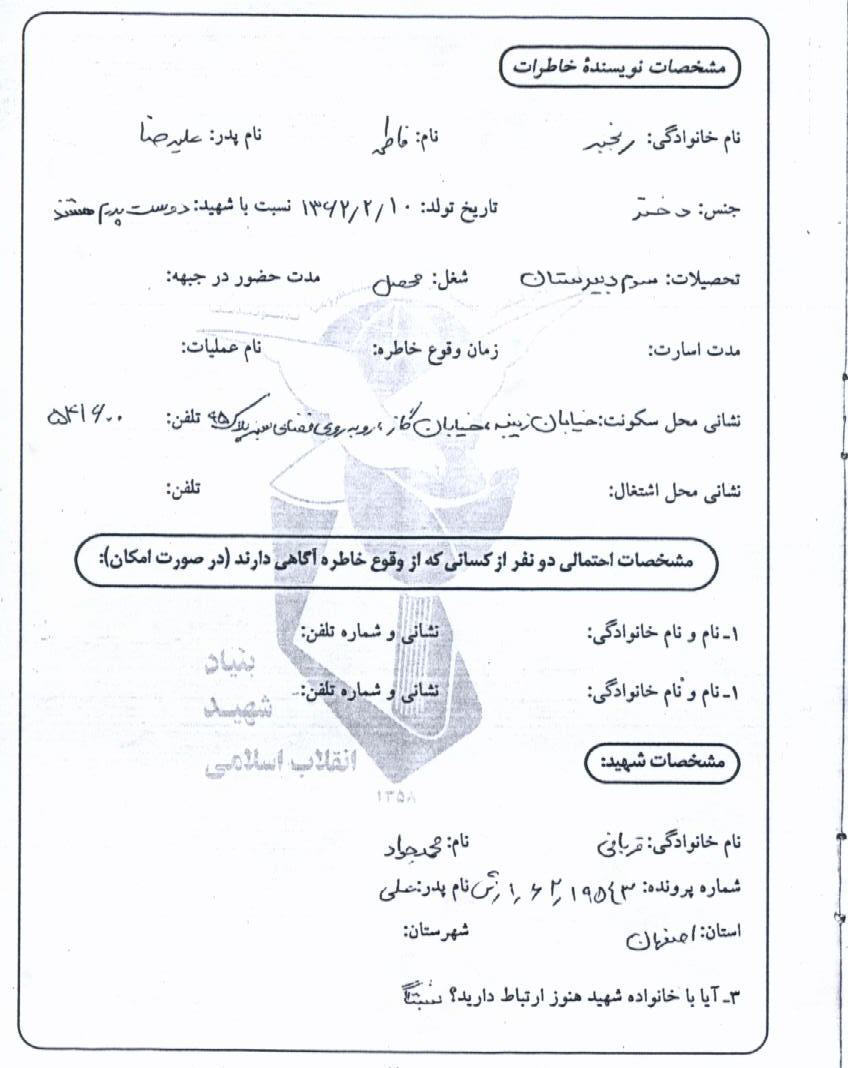 مشخصات نویسندهٔ خاطرات
نام خانوادگی: رنجبر نام: فاطمه نام پدر: علیرضا
جنس: دختر تاریخ تولد: ۱۳۶۲/۲/۱۰ نسبت با شهید: دوست پدرم هستند
تحصیلات: سوم دبیرستان شغل: محصل مدت حضور در جبهه:
مدت اسارت: زمان وقوع خاطره: نام عملیات:
نشانی محل سکونت: خیابان زینبیه، خیابان گاز، روبه روی فضای سبز پلاک ۹۵ تلفن: ۵۴۱۶۰۰
نشانی محل اشتغال: تلفن:
مشخصات احتمالی دو نفر از کسانی که از وقوع خاطره آگاهی دارند (در صورت امکان):
۱ـ نام و نام خانوادگی: نشانی و شماره تلفن:
۱ـ نام و نام خانوادگی: نشانی و شماره تلفن:
بنیاد
شهید
انقلاب اسلامی
۱۳۵۸
مشخصات شهید:
نام خانوادگی: قربانی نام: محمدجواد
شماره پرونده: نام پدر: علی
استان: اصفهان شهرستان:
۳ـ آیا با خانواده شهید هنوز ارتباط دارید؟